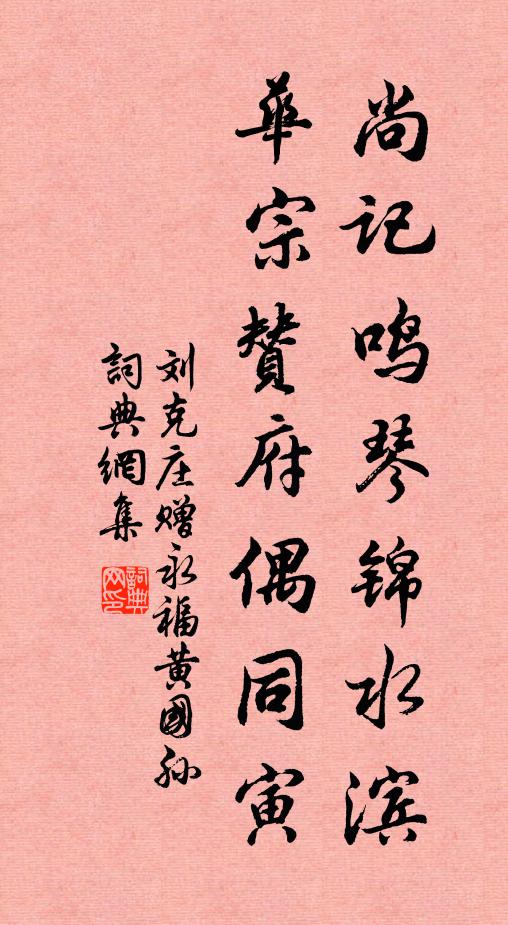 尚记鸣琴锦水滨
華宗賛府偶同寅
刘克庄赠永福黄國孙
詞典網集
詞典网印